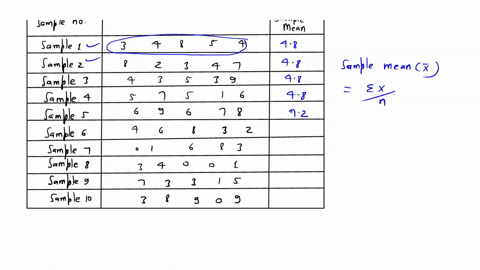 Sample no. Sample Mean
Sample 1 3 4 8 5 4 4.8
Sample 2 8 2 3 4 7 4.8
Sample 3 4 3 5 3 9 4.8
Sample 4 5 7 5 1 6 4.8
Sample 5 6 9 6 7 8 9.2
Sample 6 4 6 8 3 2
Sample 7 0 1 6 8 3
Sample 8 3 4 0 0 1
Sample 9 7 3 3 1 5
Sample 10 3 8 9 0 9
Sample mean (x̄)
= Σx/n